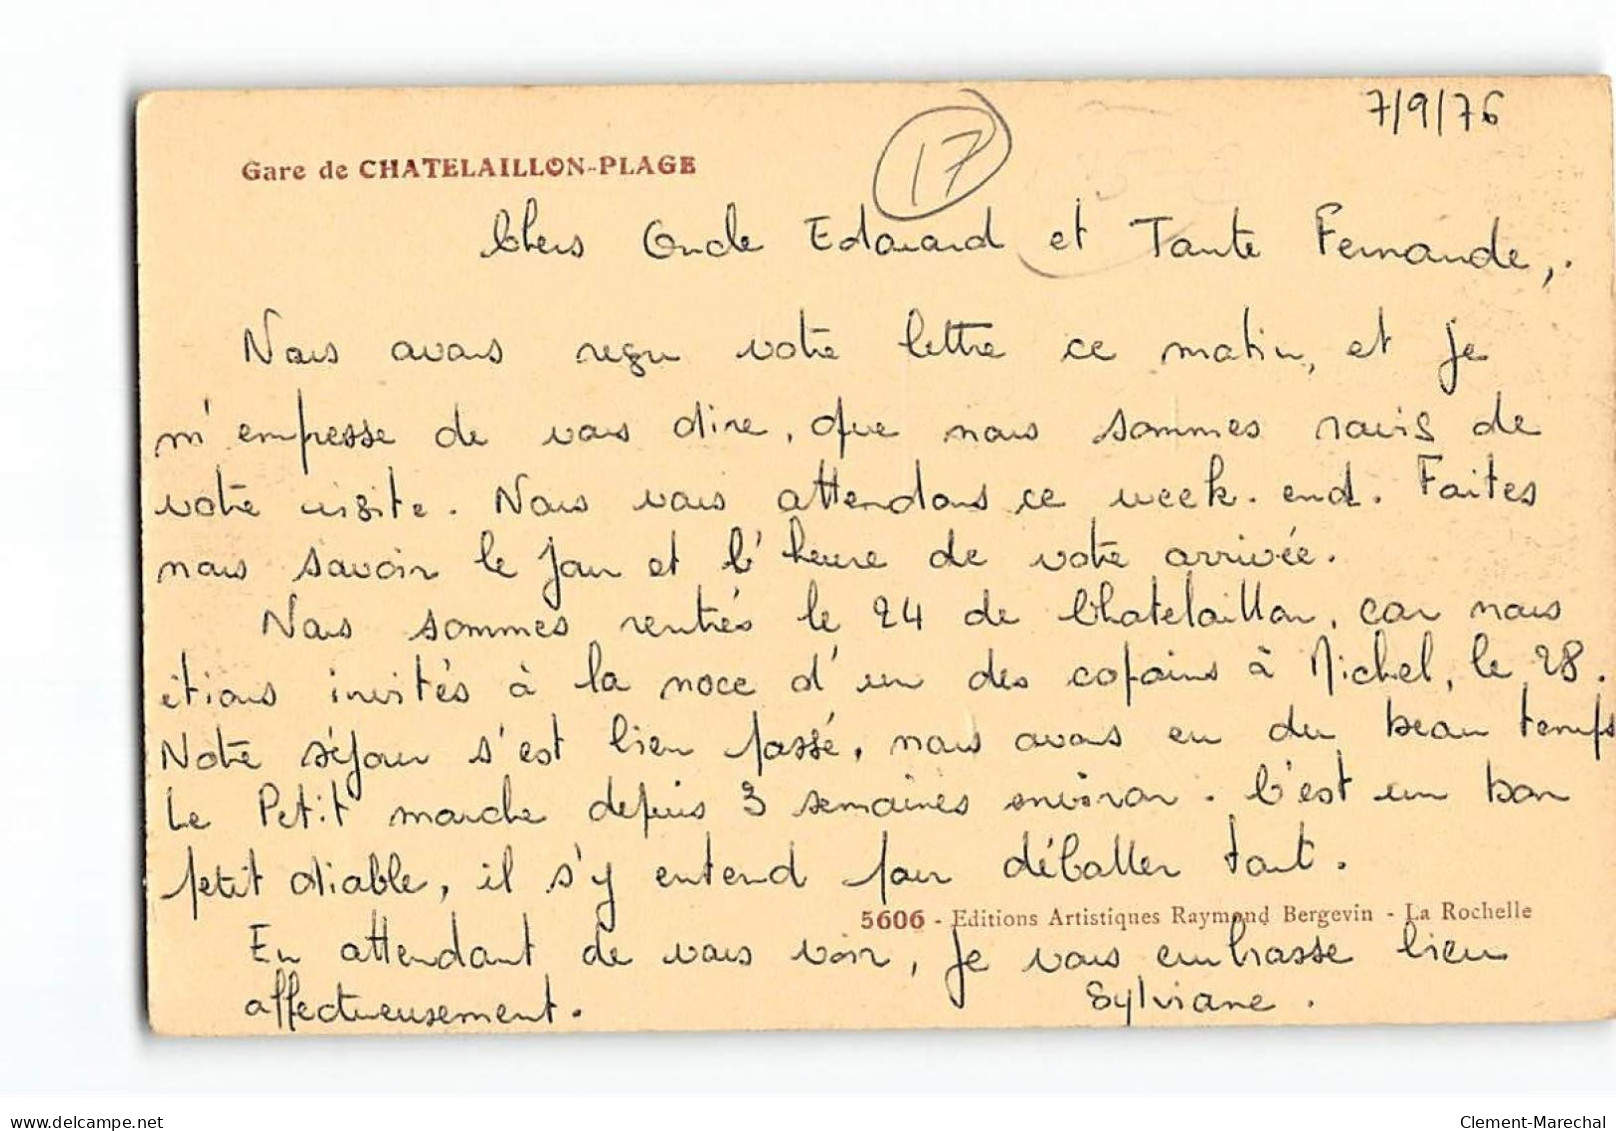 7/9/76
17
Gare de CHATELAILLON-PLAGE
Chers Oncle Edouard et Tante Fernande,.
Nous avons reçu votre lettre ce matin, et je
m'empresse de vous dire, que nous sommes ravis de
votre visite. Nous vous attendons ce week-end. Faites
nous savoir le jour et l'heure de votre arrivée.
Nous sommes rentrés le 24 de Chatelaillon, car nous
étions invités à la noce d'un des copains à Michel, le 28.
Notre séjour s'est bien passé, nous avons eu du beau temps
Le Petit marche depuis 3 semaines environ. C'est un bon
petit diable, il s'y entend pour déballer tout.
5606 - Editions Artistiques Raymond Bergevin - La Rochelle
En attendant de vous voir, je vous embrasse bien
affectueusement. Sylviane.
delcampe.net
Clement-Marechal